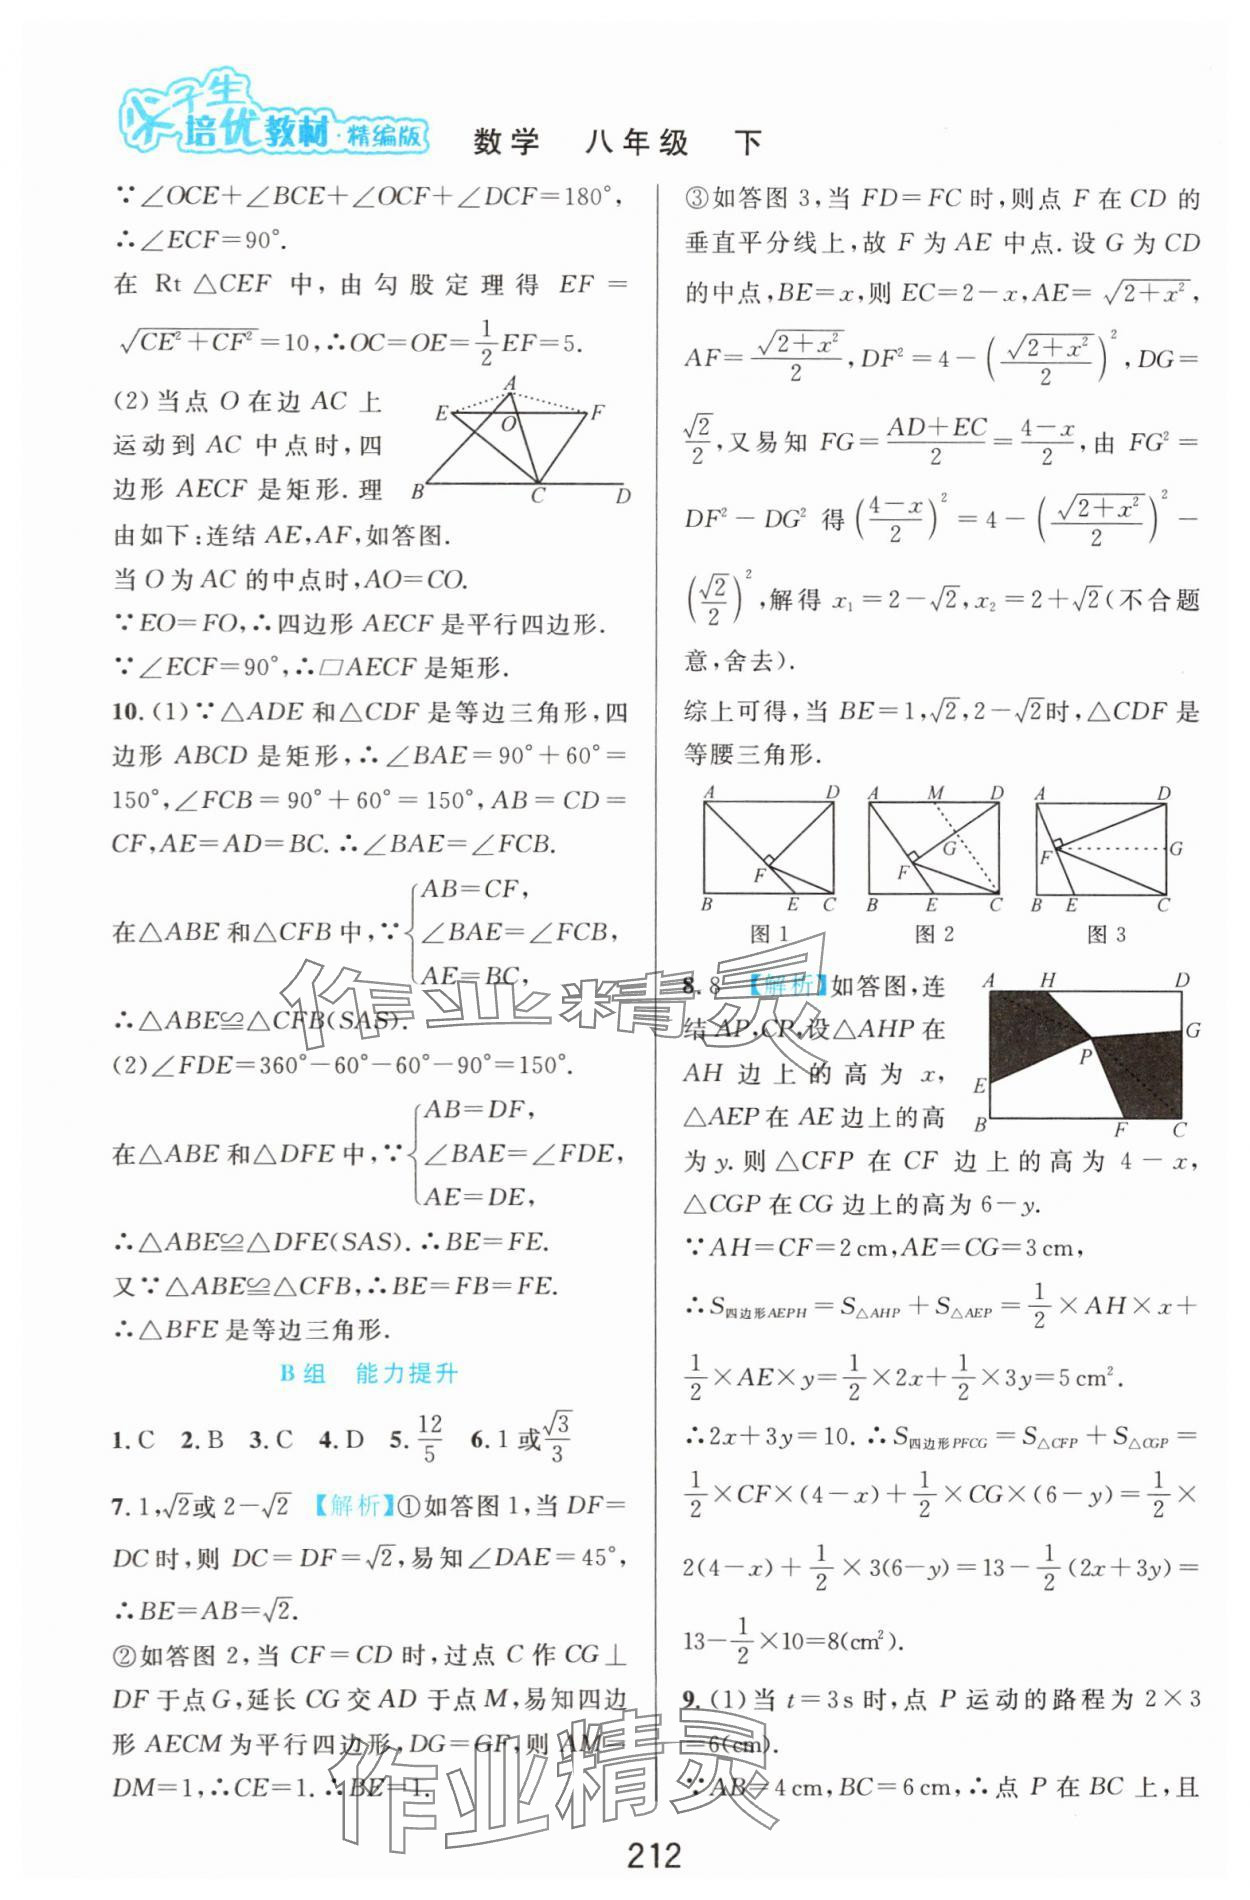 尖子生
培优教材·精编版
数学 八年级 下
∵∠OCE+∠BCE+∠OCF+∠DCF=180°,
∴∠ECF=90°.
在 Rt △CEF 中,由勾股定理得 EF=
√(CE²+CF²)=10,∴OC=OE=1/2 EF=5.
(2)当点 O 在边 AC 上
运动到 AC 中点时,四
边形 AECF 是矩形.理
由如下:连结 AE,AF,如答图.
A E O F B C D
当 O 为 AC 的中点时,AO=CO.
∵EO=FO,∴四边形 AECF 是平行四边形.
∵∠ECF=90°,∴□AECF 是矩形.
10.(1)∵△ADE 和△CDF 是等边三角形,四
边形 ABCD 是矩形,∴∠BAE=90°+60°=
150°,∠FCB=90°+60°=150°,AB=CD=
CF,AE=AD=BC.∴∠BAE=∠FCB.
AB=CF,
在△ABE 和△CFB 中,∵{∠BAE=∠FCB,
AE=BC,
∴△ABE≌△CFB(SAS).
(2)∠FDE=360°-60°-60°-90°=150°.
AB=DF,
在△ABE 和△DFE 中,∵{∠BAE=∠FDE,
AE=DE,
∴△ABE≌△DFE(SAS).∴BE=FE.
又∵△ABE≌△CFB,∴BE=FB=FE.
∴△BFE 是等边三角形.
B 组 能力提升
1.C 2.B 3.C 4.D 5.12/5 6.1或√3/3
7.1,√2或 2-√2 【解析】①如答图 1,当 DF=
DC 时,则 DC=DF=√2,易知∠DAE=45°,
∴BE=AB=√2.
②如答图 2,当 CF=CD 时,过点 C 作 CG⊥
DF 于点 G,延长 CG 交 AD 于点 M,易知四边
形 AECM 为平行四边形,DG=GF,则 AM=
DM=1,∴CE=1.∴BE=1.
③如答图 3,当 FD=FC 时,则点 F 在 CD 的
垂直平分线上,故 F 为 AE 中点.设 G 为 CD
的中点,BE=x,则 EC=2-x,AE=√(2+x²),
AF=√(2+x²)/2,DF²=4-(√(2+x²)/2)²,DG=
√2/2,又易知 FG=(AD+EC)/2=(4-x)/2,由 FG²=
DF²-DG² 得((4-x)/2)²=4-(√(2+x²)/2)²-
(√2/2)²,解得 x₁=2-√2,x₂=2+√2(不合题
意,舍去).
综上可得,当 BE=1,√2,2-√2时,△CDF 是
等腰三角形.
A D F B E C
A M D G F B E C
A D F G B E C
图 1 图 2 图 3
8.8 【解析】如答图,连
结 AP,CP,设△AHP 在
AH 边上的高为 x,
△AEP 在 AE 边上的高
A H D G P E B F C
为 y.则△CFP 在 CF 边上的高为 4-x,
△CGP 在 CG 边上的高为 6-y.
∵AH=CF=2 cm,AE=CG=3 cm,
∴S四边形AEPH=S△AHP+S△AEP=1/2×AH×x+
1/2×AE×y=1/2×2x+1/2×3y=5 cm².
∴2x+3y=10.∴S四边形PFCG=S△CFP+S△CGP=
1/2×CF×(4-x)+1/2×CG×(6-y)=1/2×
2(4-x)+1/2×3(6-y)=13-1/2(2x+3y)=
13-1/2×10=8(cm²).
9.(1)当 t=3s 时,点 P 运动的路程为 2×3
=6(cm).
∵AB=4 cm,BC=6 cm,∴点 P 在 BC 上,且
作业精灵
作业精灵
212